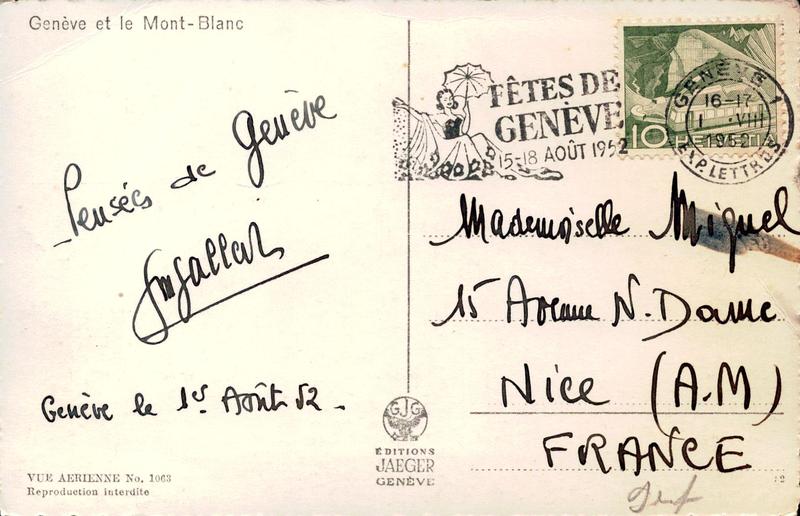 Genève et le Mont-Blanc
FÊTES DE
GENÈVE
15-18 AOÛT 1952
GENÈVE 1
16-17
1 VIII
1952
EXP. LETTRES
10 HELVETIA
Pensées de Genève
Genève le 1er Août 52.
Mademoiselle Miguel
15 Avenue N. Dame
Nice (A.M)
FRANCE
GJG
ÉDITIONS
JAEGER
GENÈVE
VUE AERIENNE No. 1063
Reproduction interdite